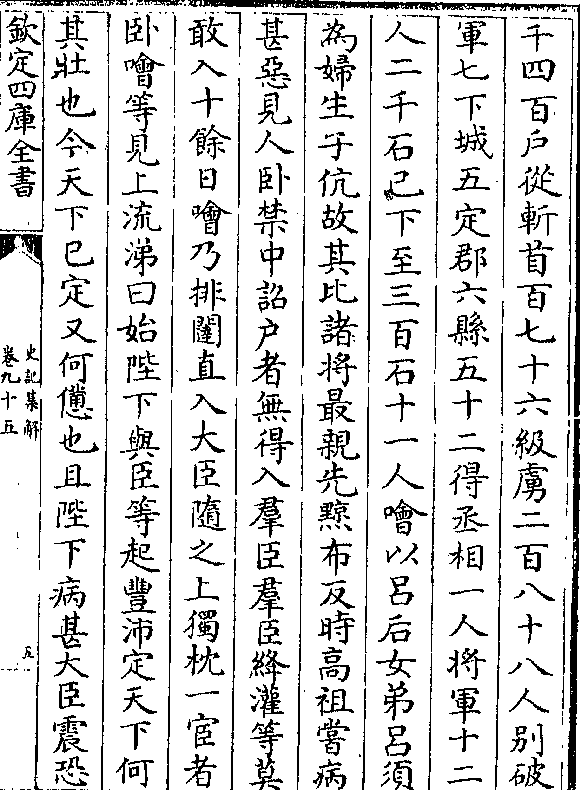 千四百戶從斬首百七十六級虜二百八十八人別破
軍七下城五定郡六縣五十二得丞相一人將軍十二
人二千石已下至三百石十一人噲以呂后女弟呂須
為婦生子伉故其比諸將最親先黥布反時高祖嘗病
甚惡見人卧禁中詔户者無得入羣臣羣臣絳灌等莫
敢入十餘日噲乃排闥直入大臣隨之上獨枕一宦者
卧噲等見上流涕曰始陛下與臣等起豐沛定天下何
其壯也今天下已定又何憊也且陛下病甚大臣震恐
欽定四庫全書
史記集解
卷九十五
五